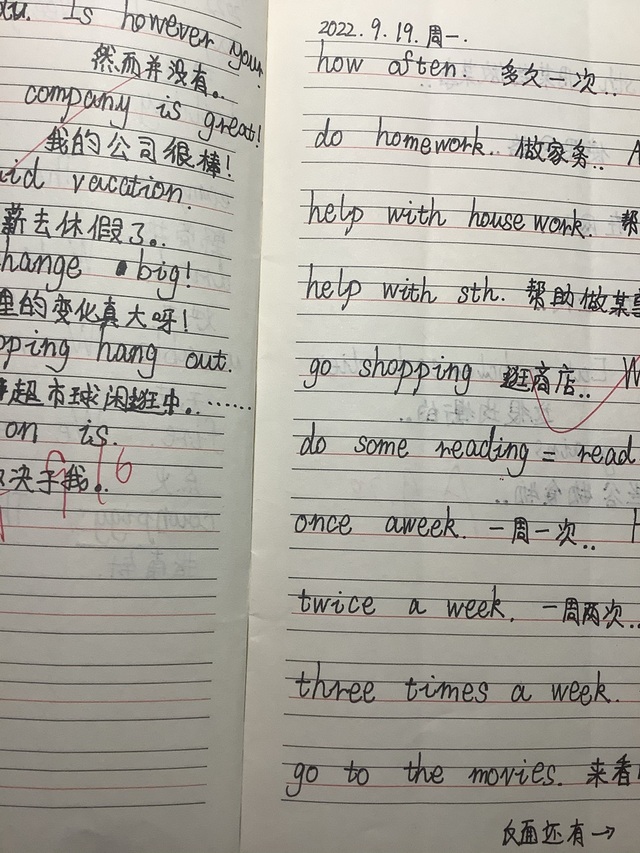 Is however your
然而并没有。
company is great!
我的公司很棒!
vacation.
薪去休假了。
hange big!
里的变化真大呀!
pping hang out.
超市球闲逛中。……
on is.
决于我。
9/16
2022.9.19.周一.
how often. 多久一次..
do homework. 做家务.. A
help with housework. 帮
help with sth. 帮助做某事
go shopping 逛商店.. W
do some reading = read
once aweek. 一周一次.. H
twice a week. 一周两次..
three times a week.
go to the movies. 来看
反面还有→